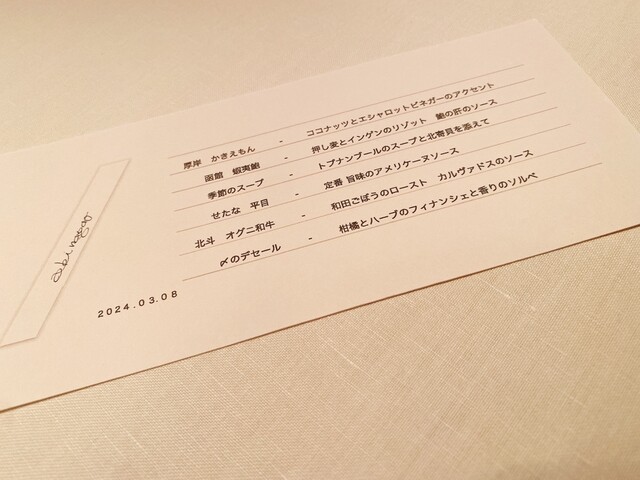 厚岸　かきえもん - ココナッツとエシャロットビネガーのアクセント
函館　蝦夷鮑 - 押し麦とインゲンのリゾット　鮑の肝のソース
季節のスープ - トプナンブールのスープと北寄貝を添えて
せたな　平目 - 定番 旨味のアメリケーヌソース
北斗　オグニ和牛 - 和田ごぼうのロースト　カルヴァドスのソース
〆のデセール - 柑橘とハーブのフィナンシェと香りのソルベ
2024.03.08